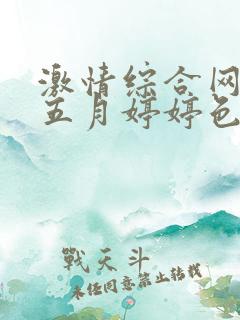 激情综合网
五月婷婷色
戰天斗
未经同意禁止转载